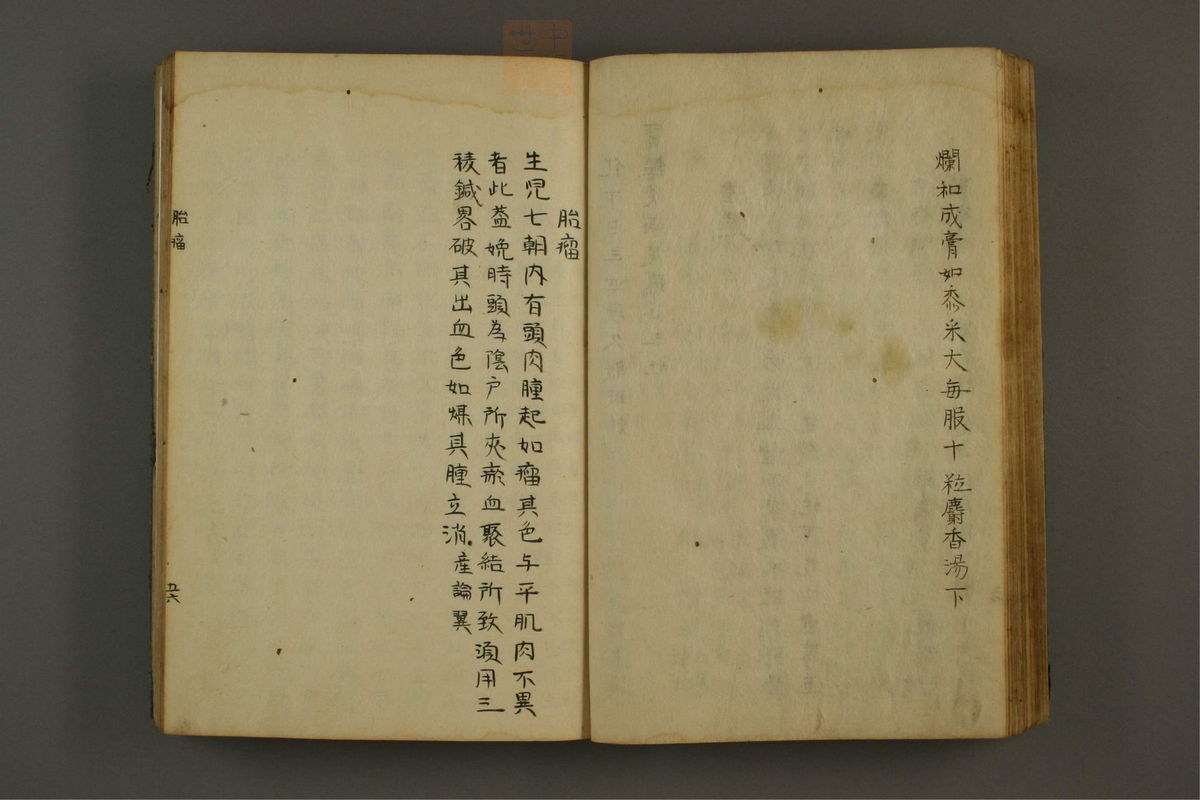 爛和成膏如黍米大每服十粒麝香湯下
胎瘤
生児七朝内有頭肉腫起如瘤其色与平肌肉不異
者此蓋娩時頭為陰戸所夾瘀血聚結所致須用三
稜鍼畧破其出血色如煤其腫立消産論翼
胎瘤
五六